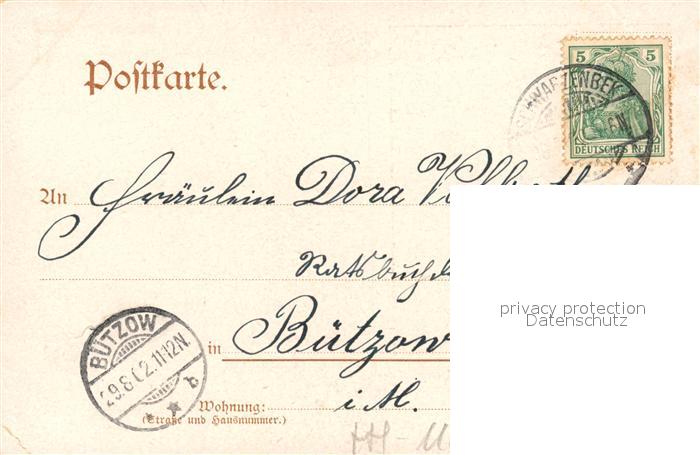 Postkarte.
5 5
DEUTSCHES REICH
SCHWARZENBEK
An Fräulein Dora
Ratsbuchd
privacy protection
Datenschutz
in Bützow
i. M.
BÜTZOW
29.8.02.11-12N.
Wohnung:
(Straße und Hausnummer.)